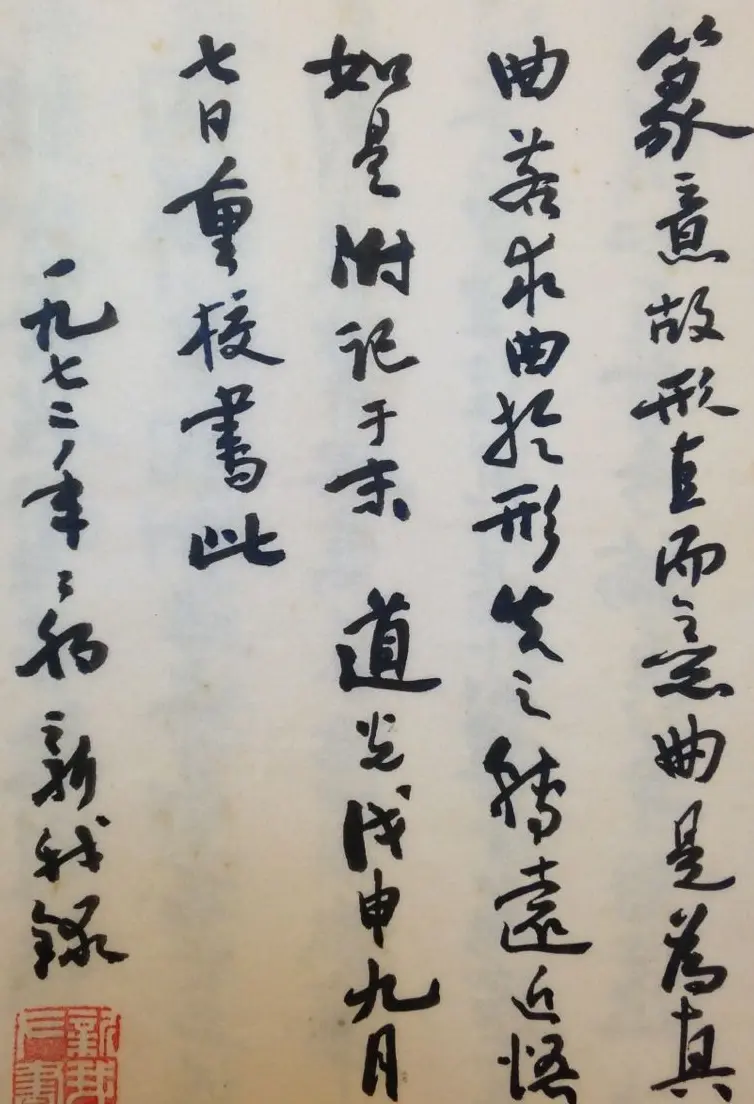 篆意故形直而意曲是為真
曲若求曲於形失之轉遠近悟
如是附记于末 道光戊申九月
七日重校書此
一九七二年 新我錄
新我左書